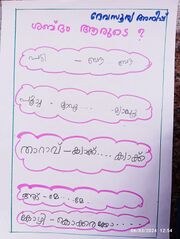 ദേവസൂര്യ അനീഷ്
ശബ്ദം ആരുടെ ?
പട്ടി - ബൗ ബൗ
പൂച്ച - മ്യാവൂ ..... മ്യാവൂ
താറാവ് - ക്വാക്ക് .... ക്വാക്ക്
ആട് - മേ .... മേ
കോഴി - കൊക്കരക്കോ ....
08/03/2024 12:54